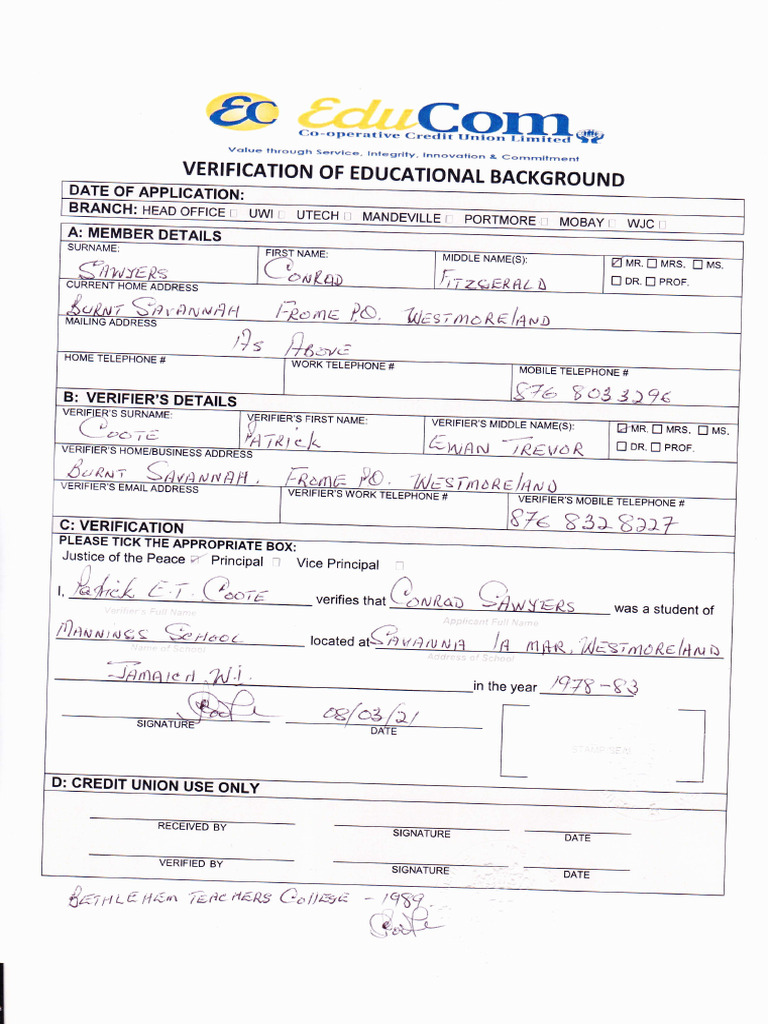 EC EduCom
Co-operative Credit Union Limited
Value through Service, Integrity, Innovation & Commitment
VERIFICATION OF EDUCATIONAL BACKGROUND
DATE OF APPLICATION:
BRANCH: HEAD OFFICE ☐ UWI ☐ UTECH ☐ MANDEVILLE ☐ PORTMORE ☐ MOBAY ☐ WJC ☐
A: MEMBER DETAILS
SURNAME: FIRST NAME: MIDDLE NAME(S): ☑ MR. ☐ MRS. ☐ MS.
SAWYERS CONRAD FITZGERALD ☐ DR. ☐ PROF.
CURRENT HOME ADDRESS
BURNT SAVANNAH FROME P.O. WESTMORELAND
MAILING ADDRESS
AS ABOVE
HOME TELEPHONE # WORK TELEPHONE # MOBILE TELEPHONE #
876 8033296
B: VERIFIER'S DETAILS
VERIFIER'S SURNAME: VERIFIER'S FIRST NAME: VERIFIER'S MIDDLE NAME(S): ☑ MR. ☐ MRS. ☐ MS.
COOTE PATRICK EWAN TREVOR ☐ DR. ☐ PROF.
VERIFIER'S HOME/BUSINESS ADDRESS
BURNT SAVANNAH. FROME P.O. WESTMORELAND
VERIFIER'S EMAIL ADDRESS VERIFIER'S WORK TELEPHONE # VERIFIER'S MOBILE TELEPHONE #
876 832 8227
C: VERIFICATION
PLEASE TICK THE APPROPRIATE BOX:
Justice of the Peace ☑ Principal ☐ Vice Principal ☐
I, Patrick E.T. COOTE verifies that CONRAD SAWYERS was a student of
Verifier's Full Name Applicant Full Name
MANNINGS SCHOOL located at SAVANNA la MAR, WESTMORELAND
Name of School Address of School
JAMAICA W.I. in the year 1978-83
08/03/21
SIGNATURE DATE
STAMP/SEAL
D: CREDIT UNION USE ONLY
RECEIVED BY SIGNATURE DATE
VERIFIED BY SIGNATURE DATE
BETHLEHEM TEACHERS COLLEGE - 1989.